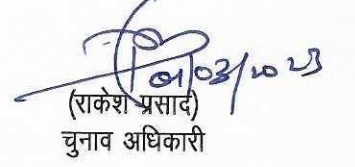 03/2023
(राकेश प्रसाद)
चुनाव अधिकारी